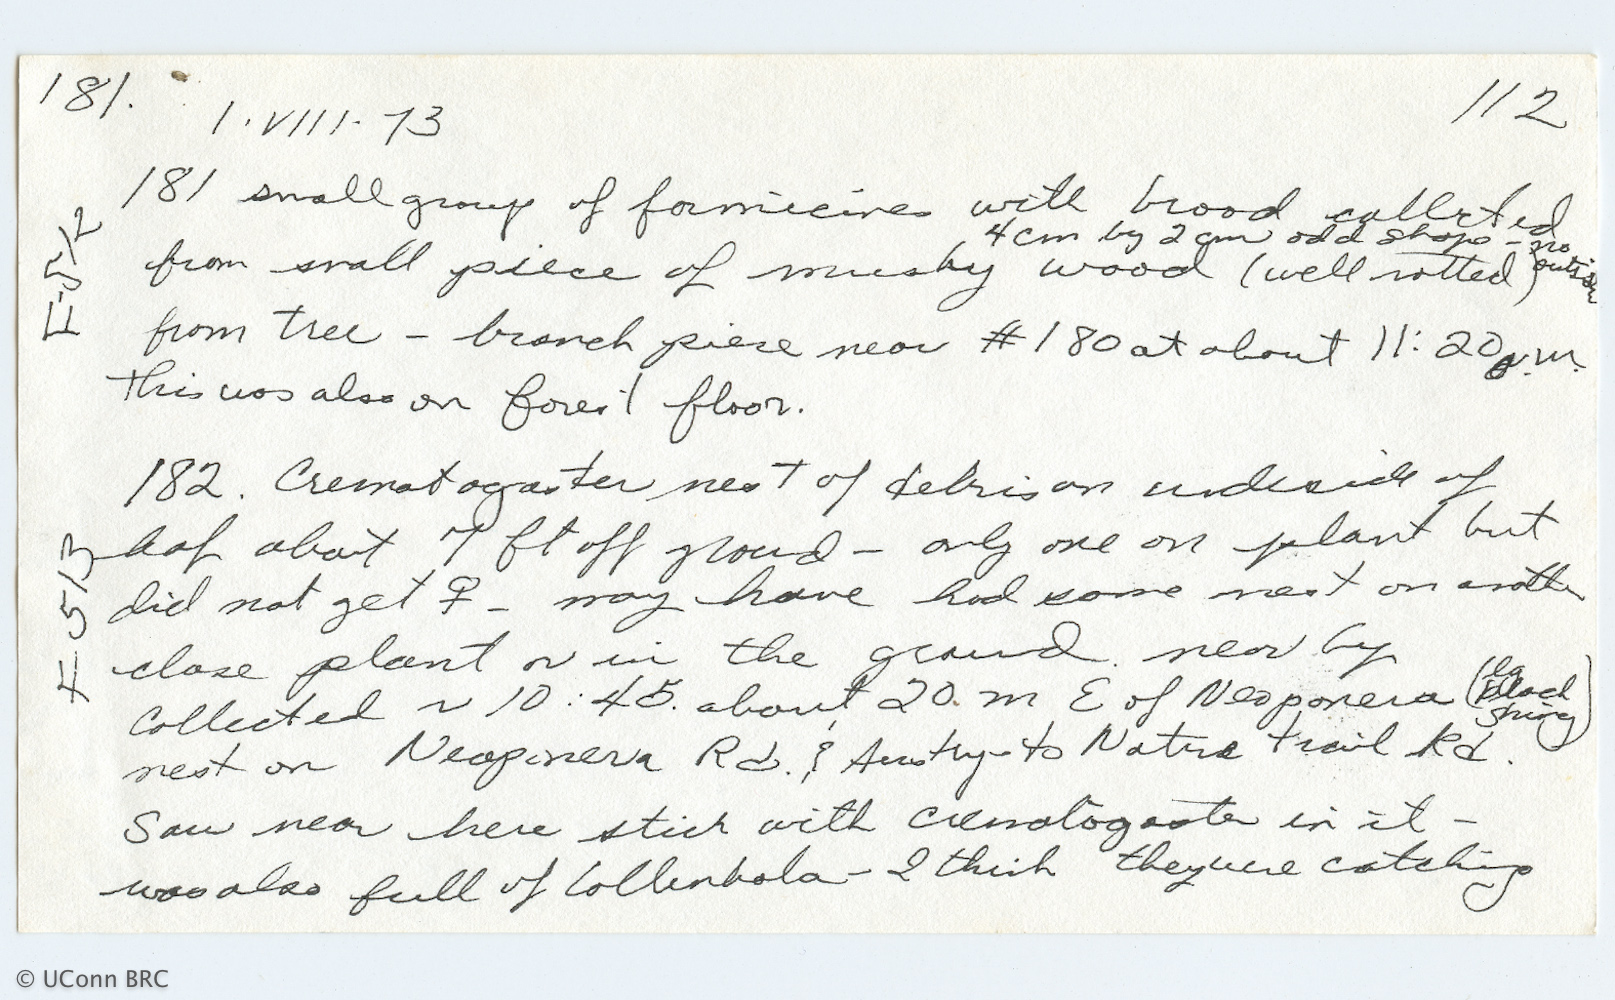 181.
112
1·VIII·73
E-512
181 small group of formicines with brood collected
4 cm by 2 cm odd shape - no
from small piece of mushy wood (well rotted) outside
from tree - branch piece near #180 at about 11:20
This was also on forest floor.
E-513
182. Crematogaster nest of debris on underside of
leaf about 7 ft off ground - only one on plant but
did not get ♀ - may have had some nest on another
close plant or in the ground near by
Collected ~ 10:45. about 20 m E of Neoponera (
black
shiny)
nest on Neoponera Rd. to Nature Trail Rd.
Saw near here stick with crematogaster in it -
was also full of Collembola - I think they were catching
© UConn BRC